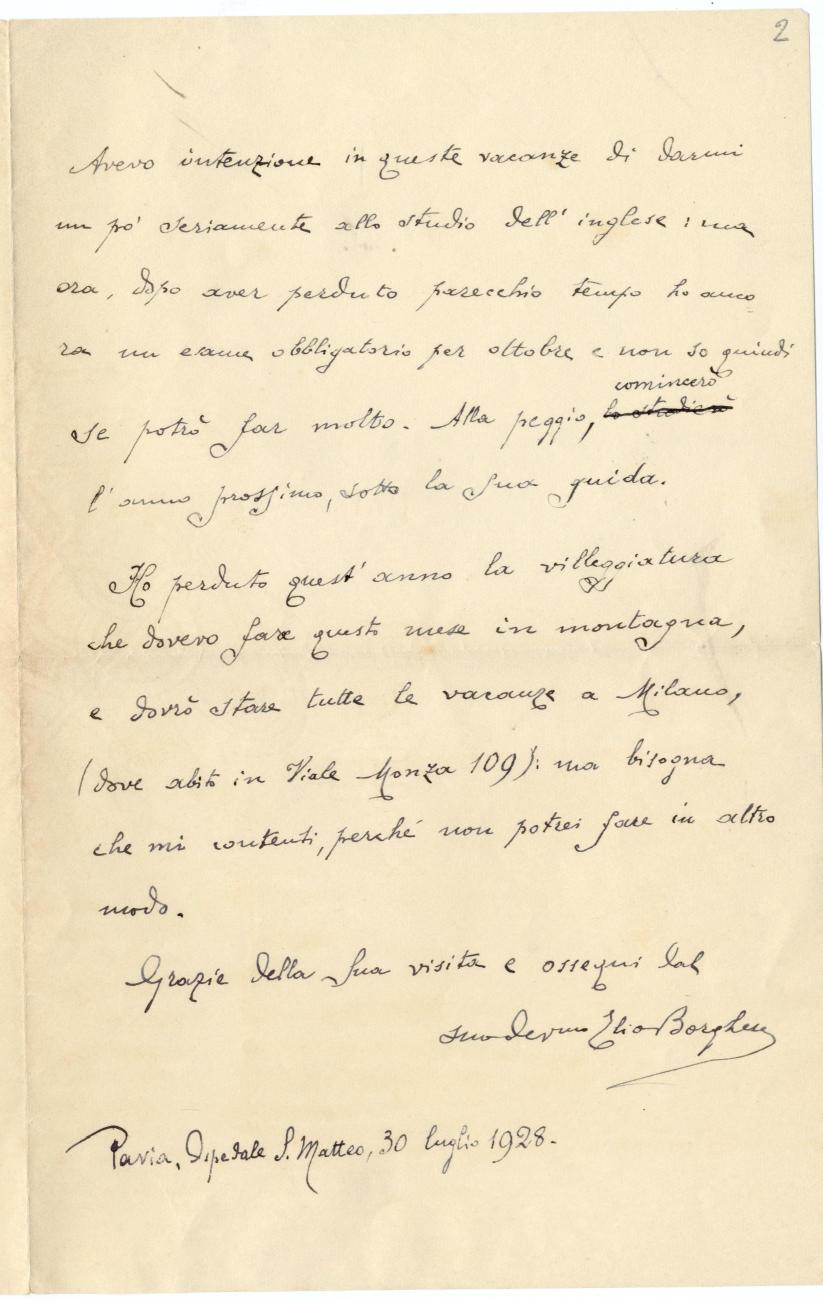 2
Avevo intenzione in queste vacanze di darmi
un pò seriamente allo studio dell' inglese : ma
ora, dopo aver perduto parecchio tempo ho anco
ra un esame obbligatorio per ottobre e non so quindi
se potrò far molto. Alla peggio, ~~lo studierò~~ comincerò
l'anno prossimo, sotto la Sua guida.
Ho perduto quest'anno la villeggiatura
che dovevo fare questo mese in montagna,
e dovrò stare tutte le vacanze a Milano,
(dove abito in Viale Monza 109): ma bisogna
che mi contenti, perché non potrei fare in altro
modo.
Grazie della Sua visita e ossequi dal
suo dev.mo Elio Borghese
Pavia, Ospedale S. Matteo, 30 luglio 1928.